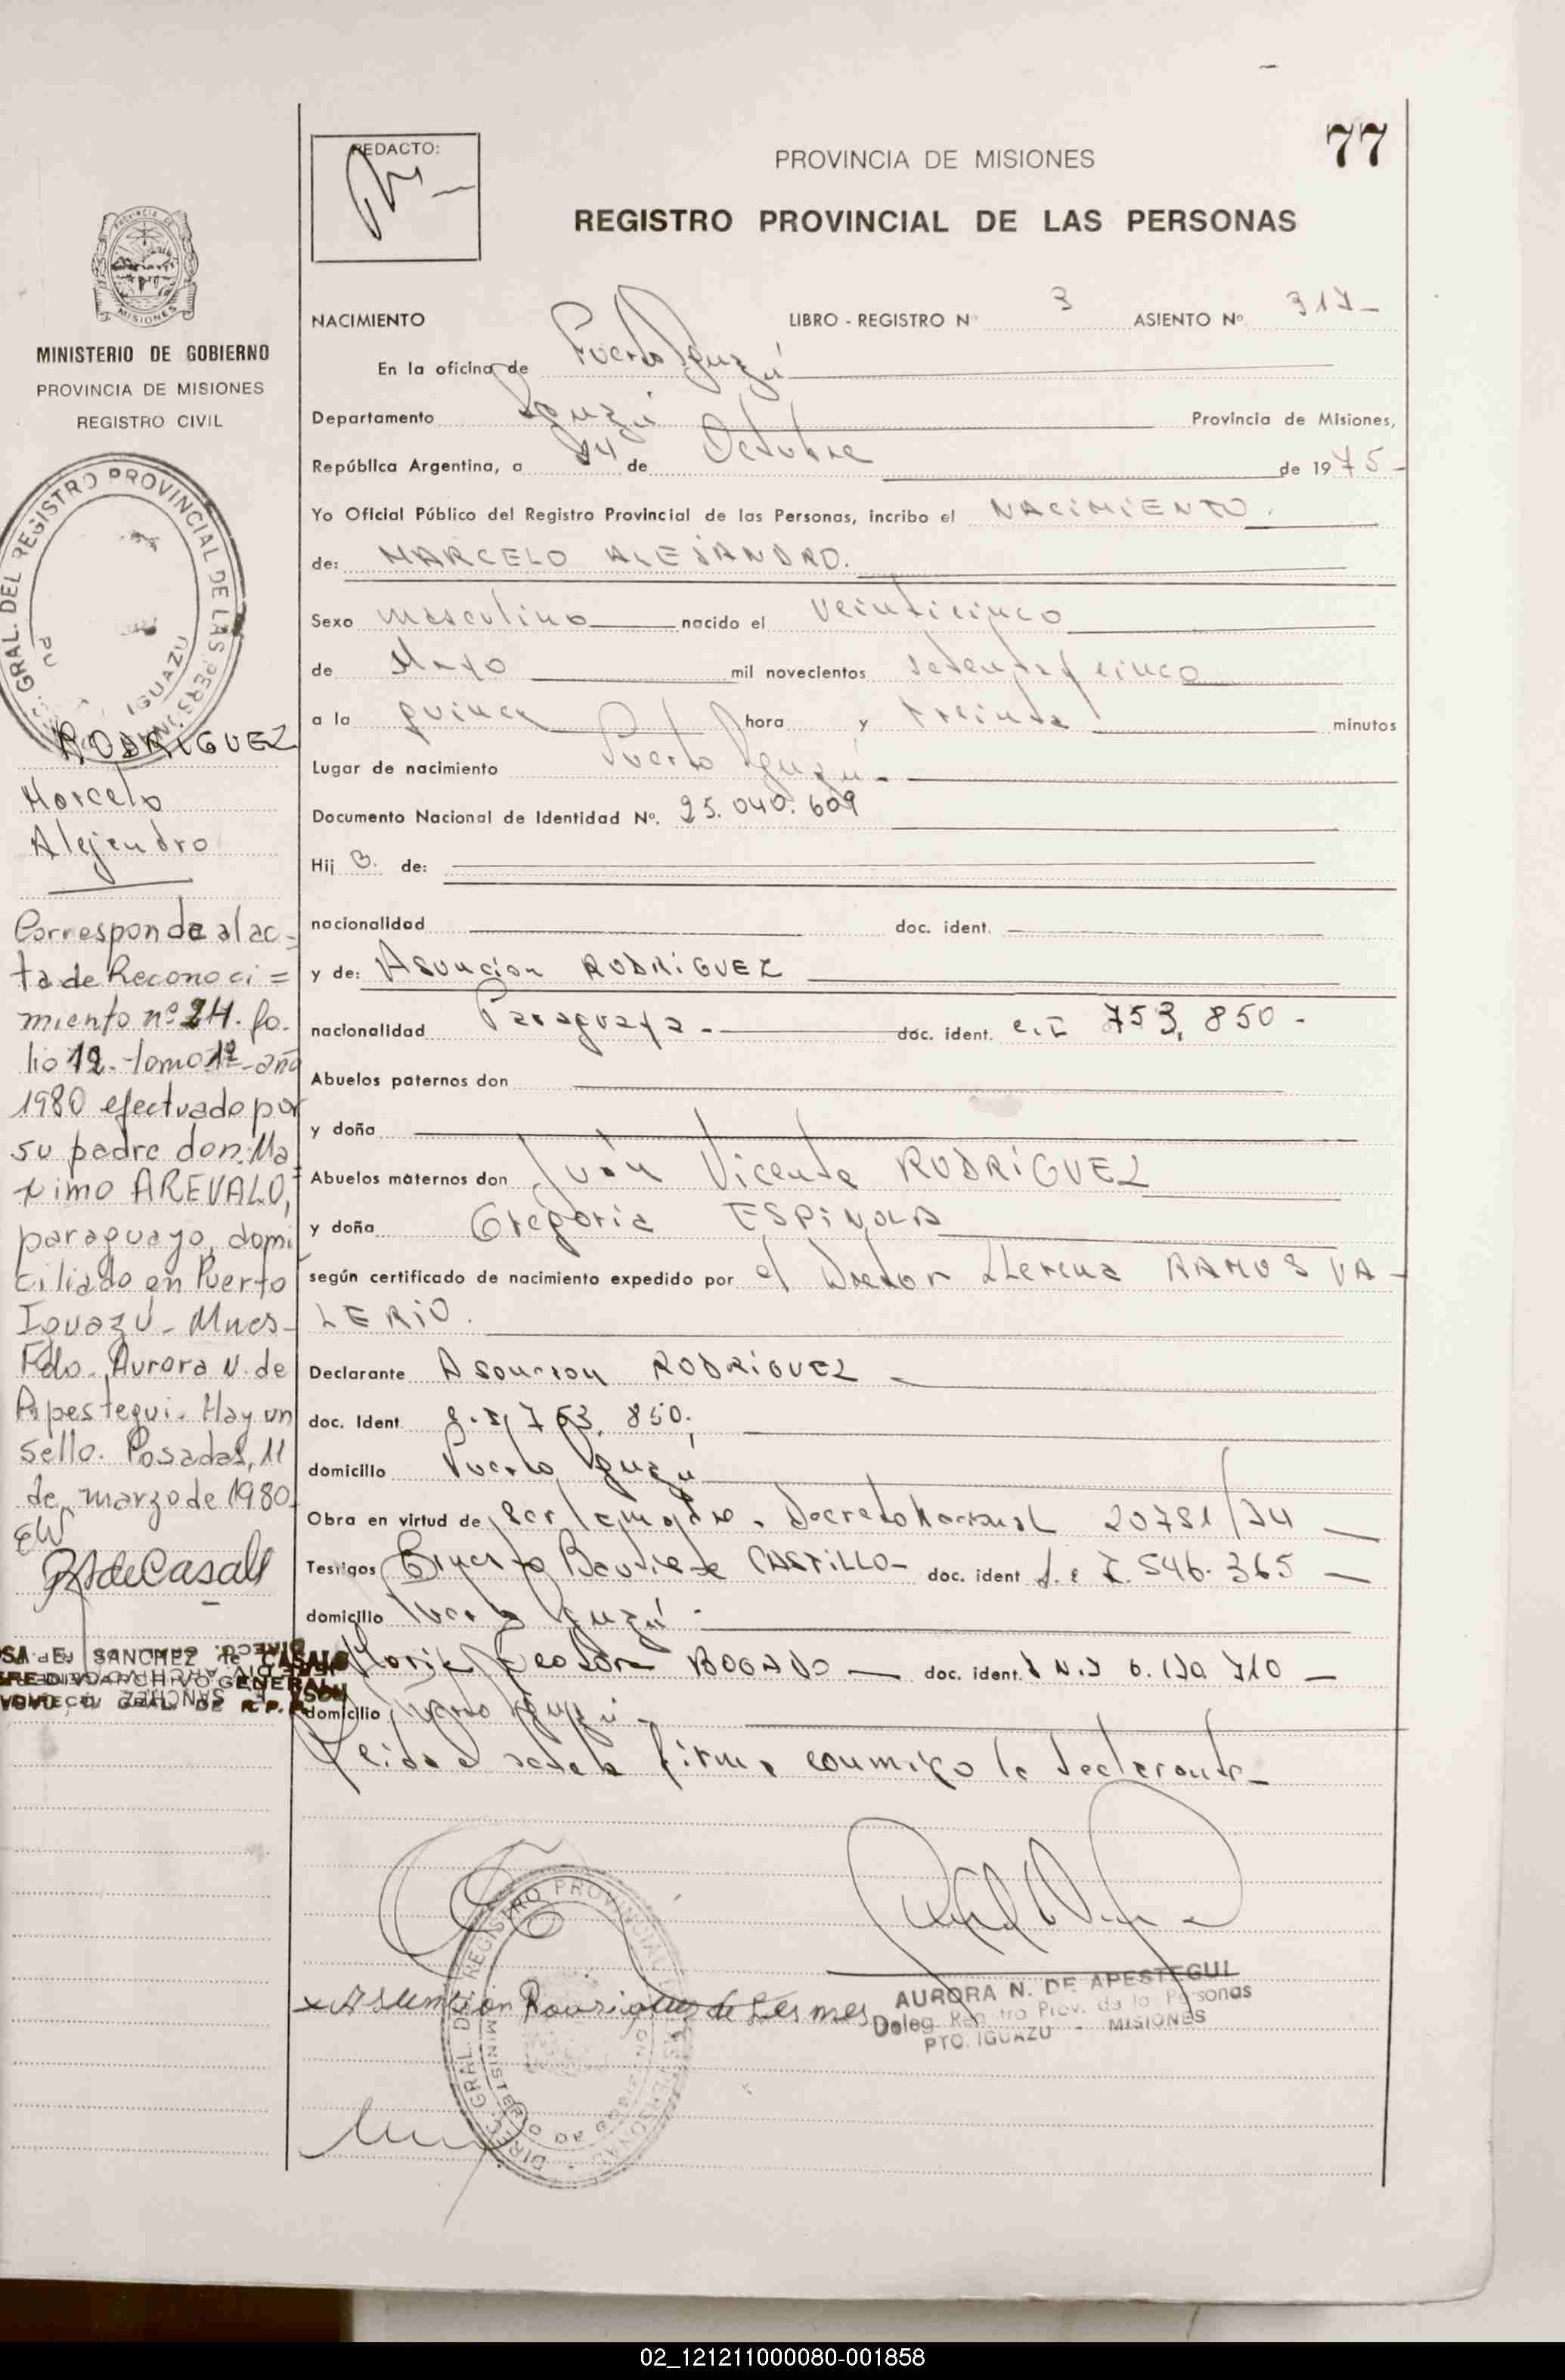 77
REDACTO:
PROVINCIA DE MISIONES
REGISTRO PROVINCIAL DE LAS PERSONAS
NACIMIENTO LIBRO - REGISTRO Nº 3 ASIENTO Nº 317-
En la oficina de Puerto Iguazú
Departamento Iguazú Provincia de Misiones,
República Argentina, a 24 de Octubre de 1975-
Yo Oficial Público del Registro Provincial de las Personas, incribo el NACIMIENTO.
de: MARCELO ALEJANDRO.
Sexo masculino nacido el veinticinco
de Mayo mil novecientos setenta y cinco
a la quince hora y treinta minutos
Lugar de nacimiento Puerto Iguazú.
Documento Nacional de Identidad Nº. 25.040.609
Hij o. de:
nacionalidad doc. ident.
y de: Asunción RODRIGUEZ
nacionalidad Paraguaya.- doc. ident. c.I 753.850-
Abuelos paternos don
y doña
Abuelos maternos don Juán Vicente RODRÍGUEZ
y doña Gregoria ESPINOLA
según certificado de nacimiento expedido por el Doctor Llerena RAMOS VA-
LERIO.
Declarante Asuncion RODRIGUEZ
doc. Ident 753.850.
domicilio Puerto Iguazú
Obra en virtud de ser la madre. Decreto Nacional 20781/74
Testigos Ernesto Bautista CASTILLO- doc. ident L.E 7.546.365
domicilio Puerto Iguazú.
María Teodora BOGADO doc. ident. D N.I 6.170.710
domicilio Puerto Iguazú
Leida el acta la firma conmigo la declarante-
x Asuncion Rodriguez de Lesmes
AURORA N. DE APESTEGUI
Deleg. Registro Prov. de las Personas
PTO. IGUAZU - MISIONES
PROVINCIA DE
MISIONES
MINISTERIO DE GOBIERNO
PROVINCIA DE MISIONES
REGISTRO CIVIL
GRAL. DEL REGISTRO PROVINCIAL DE LAS PERSONAS
IGUAZU
RODRIGUEZ
Marcelo
Alejandro
Corresponde al ac-
ta de Reconoci=
miento nº 24. fo.
lio 12. tomo 1º-año
1980 efectuado por
su padre don: Má
ximo AREVALO,
paraguayo, domi
ciliado en Puerto
Iguazú - Mnes-
Fdo. Aurora N. de
Apestegui. Hay un
sello. Posadas, 11
de marzo de 1980.
EW
RSdeCasals
SANCHEZ de CASALS
ARCHIVO GENERAL
GRAL. DE R.P.P.
DIREC. GRAL. DEL REGISTRO PROVINCIAL DE LAS PERSONAS
02_121211000080-001858